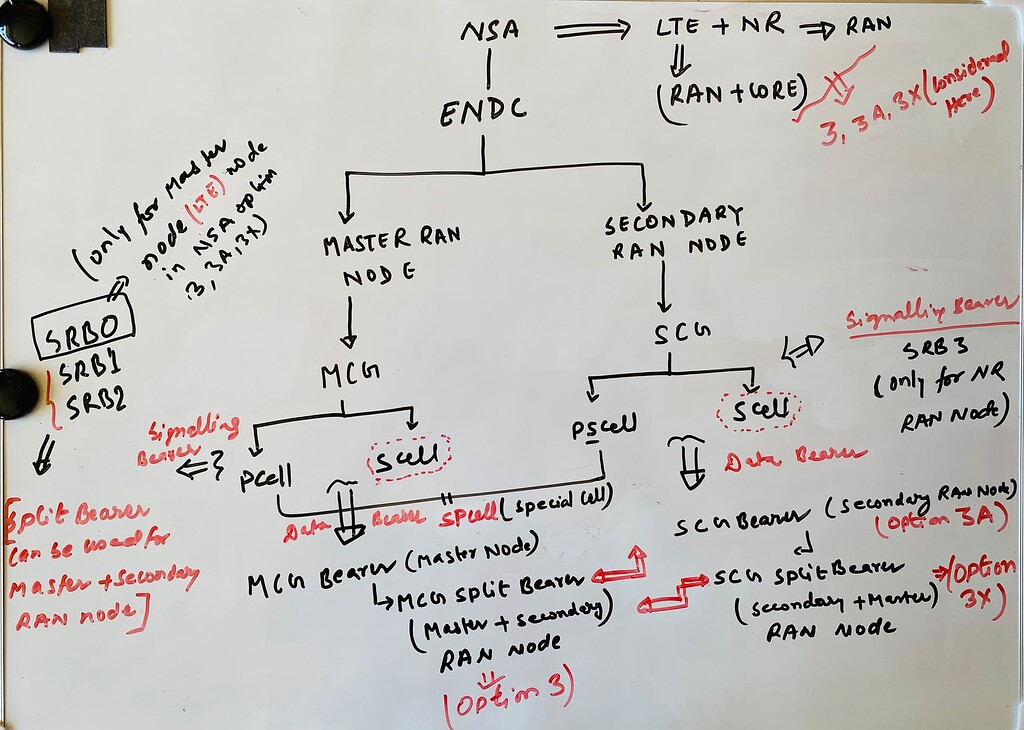 NSA ⇒ LTE + NR ⇒ RAN
(RAN + CORE)
3, 3A, 3X (Considered
Here)
ENDC
(only for Master
node (LTE) node
in NSA option
3, 3A, 3X)
MASTER RAN
NODE
SECONDARY
RAN NODE
SRB0
SRB1
SRB2
MCG
SCG
Signalling Bearer
SRB3
(only for NR
RAN Node)
Signalling
Bearer
Pcell
Scell
PScell
Scell
Data Bearer
SPcell (special cell)
Data Bearer
[Split Bearer
can be used for
Master + Secondary
RAN node]
MCG Bearer (Master Node)
MCG Split Bearer
(Master + secondary)
RAN NODE
(Option 3)
SCG Bearer (Secondary RAN Node)
(Option 3A)
SCG Split Bearer ⇒ (Option
3X)
(Secondary + Master)
RAN NODE